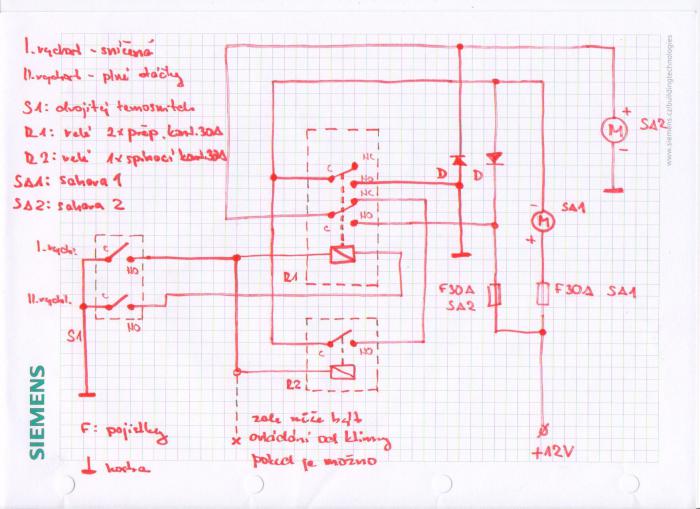 I. rychlost - snížená
II. rychlost - plné otáčky
S1: dvojitej termoswitch
R1: relé 2x přep. kont. 30A
R2: relé 1x spínací kont. 30A
SA1: sahara 1
SA2: sahara 2
www.siemens.cz/buildingtechnologies
+
M
SA2
-
NC
C
NO
NC
NO
C
D
D
-
SA1
M
+
I. rychl.
C
NO
R1
II. rychl.
C
NO
F30A
SA2
F30A SA1
S1
C
NO
R2
SIEMENS
F: pojistky
kostra
zde může být
ovládání od klimy
pokud je možno
+12V